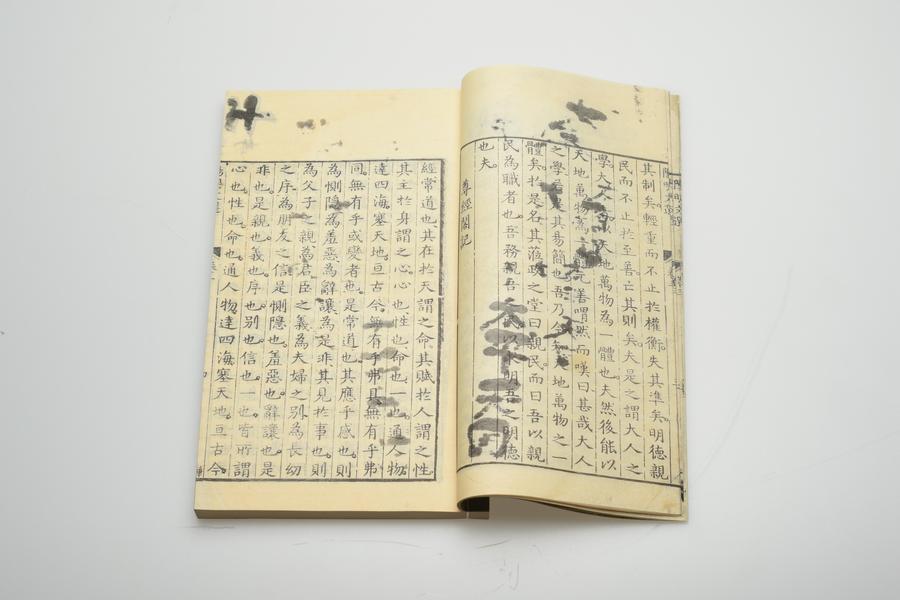 其制矣輕重而不止於權衡失其準矣明德親
民而不止於至善亡其則矣夫是之謂大人之
學大人者以天地萬物為一體也夫然後能以
天地萬物為一體元善喟然而嘆曰甚哉大人
之學若是其易簡也吾乃今知天地萬物之一
體矣於是名其蒞政之堂曰親民而曰吾以親
民為職者也吾務親吾之民以求明吾之明德
也夫
尊經閣記
經常道也其在於天謂之命其賦於人謂之性
其主於身謂之心心也性也命也一也通人物
達四海塞天地亘古今無有乎弗具無有乎弗
同無有乎或變者也是常道也其應乎感也則
為惻隱為羞惡為辭讓為是非其見於事也則
為父子之親為君臣之義為夫婦之別為長幼
之序為朋友之信是惻隱也羞惡也辭讓也是
非也是親也義也序也別也信也一也皆所謂
心也性也命也通人物達四海塞天地亘古今